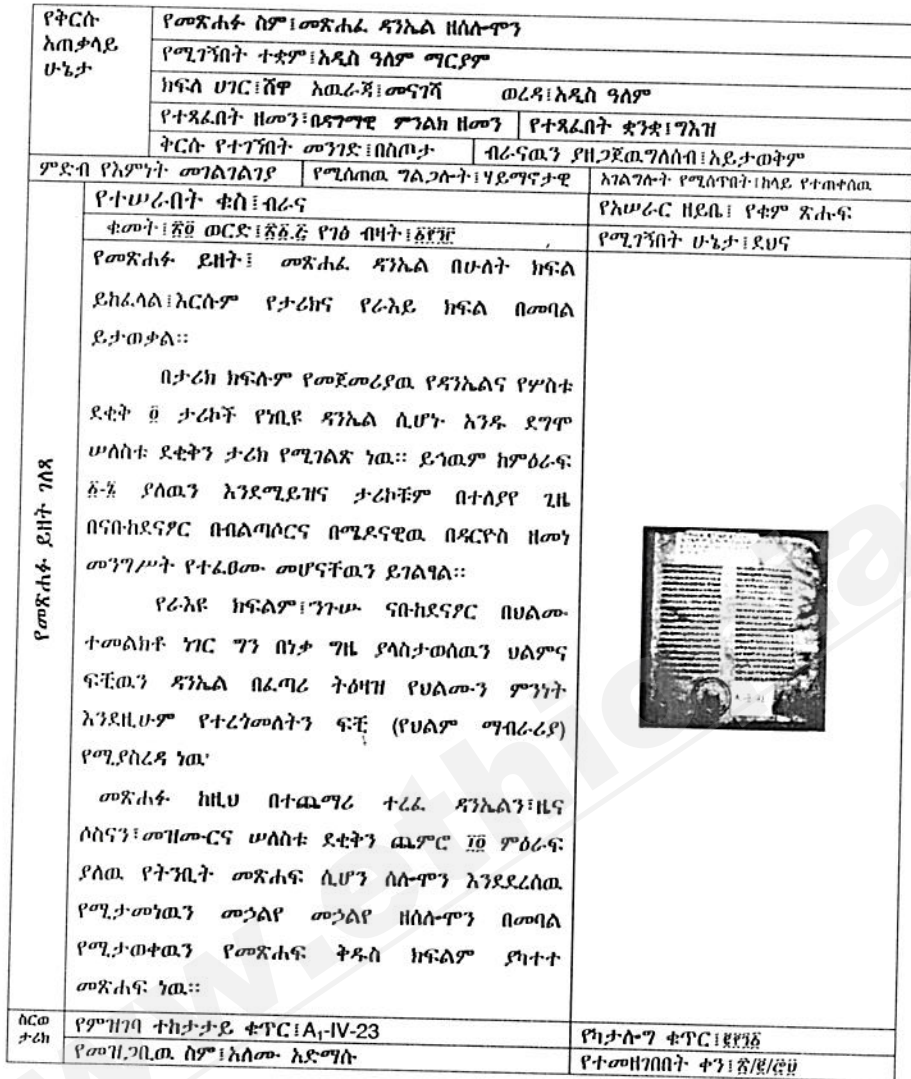 የቅርሱ አጠቃላይ ሁኔታ
የመጽሐፉ ስም፤መጽሐፈ ዳንኤል ዘሰሎሞን
የሚገኝበት ተቋም፤አዲስ ዓለም ማርያም
ክፍለ ሀገር፤ሸዋ አዉራጃ፤መናገሻ ወረዳ፤አዲስ ዓለም
የተጻፈበት ዘመን፤በዳግማዊ ምንልክ ዘመን የተጻፈበት ቋንቋ፤ግእዝ
ቅርሱ የተገኘበት መንገድ፤በስጦታ ብራናዉን ያዘጋጀዉግለሰብ፤አይታወቅም
ምድብ የእምነት መገልገልገያ የሚሰጠዉ ግልጋሎት፤ሃይማኖታዊ አገልግሎት የሚሰጥበት፤ከላይ የተጠቀሰዉ
የተሠራበት ቁስ፤ብራና የአሠራር ዘይቤ፤ የቁም ጽሑፍ
ቁመት፤ ወርድ፤ የገፅ ብዛት፤ የሚገኝበት ሁኔታ፤ደህና
የመጽሐፉ ይዘት ገለጻ
የመጽሐፉ ይዘት፤ መጽሐፈ ዳንኤል በሁለት ክፍል
ይከፈላል፤እርሱም የታሪክና የራእይ ክፍል በመባል
ይታወቃል።
በታሪክ ክፍሉም የመጀመሪያዉ የዳንኤልና የሦስቱ
ደቂቅ ታሪኮች የነቢዩ ዳንኤል ሲሆኑ አንዱ ደግሞ
ሠለስቱ ደቂቅን ታሪክ የሚገልጽ ነዉ። ይኀዉም ከምዕራፍ
፩-፯ ያለዉን እንደሚይዝና ታሪኮቹም በተለያየ ጊዜ
በናቡከደናፆር በብልጣሶርና በሜዶናዊዉ በዳርዮስ ዘመነ
መንግሥት የተፈፀሙ መሆናቸዉን ይገልፃል።
የራእዩ ክፍልም፤ንጉሡ ናቡከደናፆር በህልሙ
ተመልክቶ ነገር ግን በነቃ ግዜ ያላስታወሰዉን ህልምና
ፍቺዉን ዳንኤል በፈጣሪ ትዕዛዝ የህልሙን ምንነት
እንደዚሁም የተረጎመለትን ፍቺ (የህልም ማብራሪያ)
የሚያስረዳ ነዉ
መጽሐፉ ከዚህ በተጨማሪ ተረፈ ዳንኤልን፤ዜና
ሶስናን፤መዝሙርና ሠለስቱ ደቂቅን ጨምሮ ፲፬ ምዕራፍ
ያለዉ የትንቢት መጽሐፍ ሲሆን ሰሎሞን እንደደረሰዉ
የሚታመነዉን መኃልየ መኃልየ ዘሰሎሞን በመባል
የሚታወቀዉን የመጽሐፍ ቅዱስ ክፍልም ያካተተ
መጽሐፍ ነዉ።
ስርወ ታሪክ
የምዝገባ ተከታታይ ቁጥር፤A₁-IV-23 የካታሎግ ቁጥር፤
የመዝጋቢዉ ስም፤አለሙ አድማሱ የተመዘገበበት ቀን፤
www.ethio